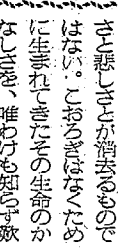 さと悲しさとが消去るもので
はない。こおろぎはなくため
に生まれてきたその生命のか
なしさを、唯わけも知らず歎